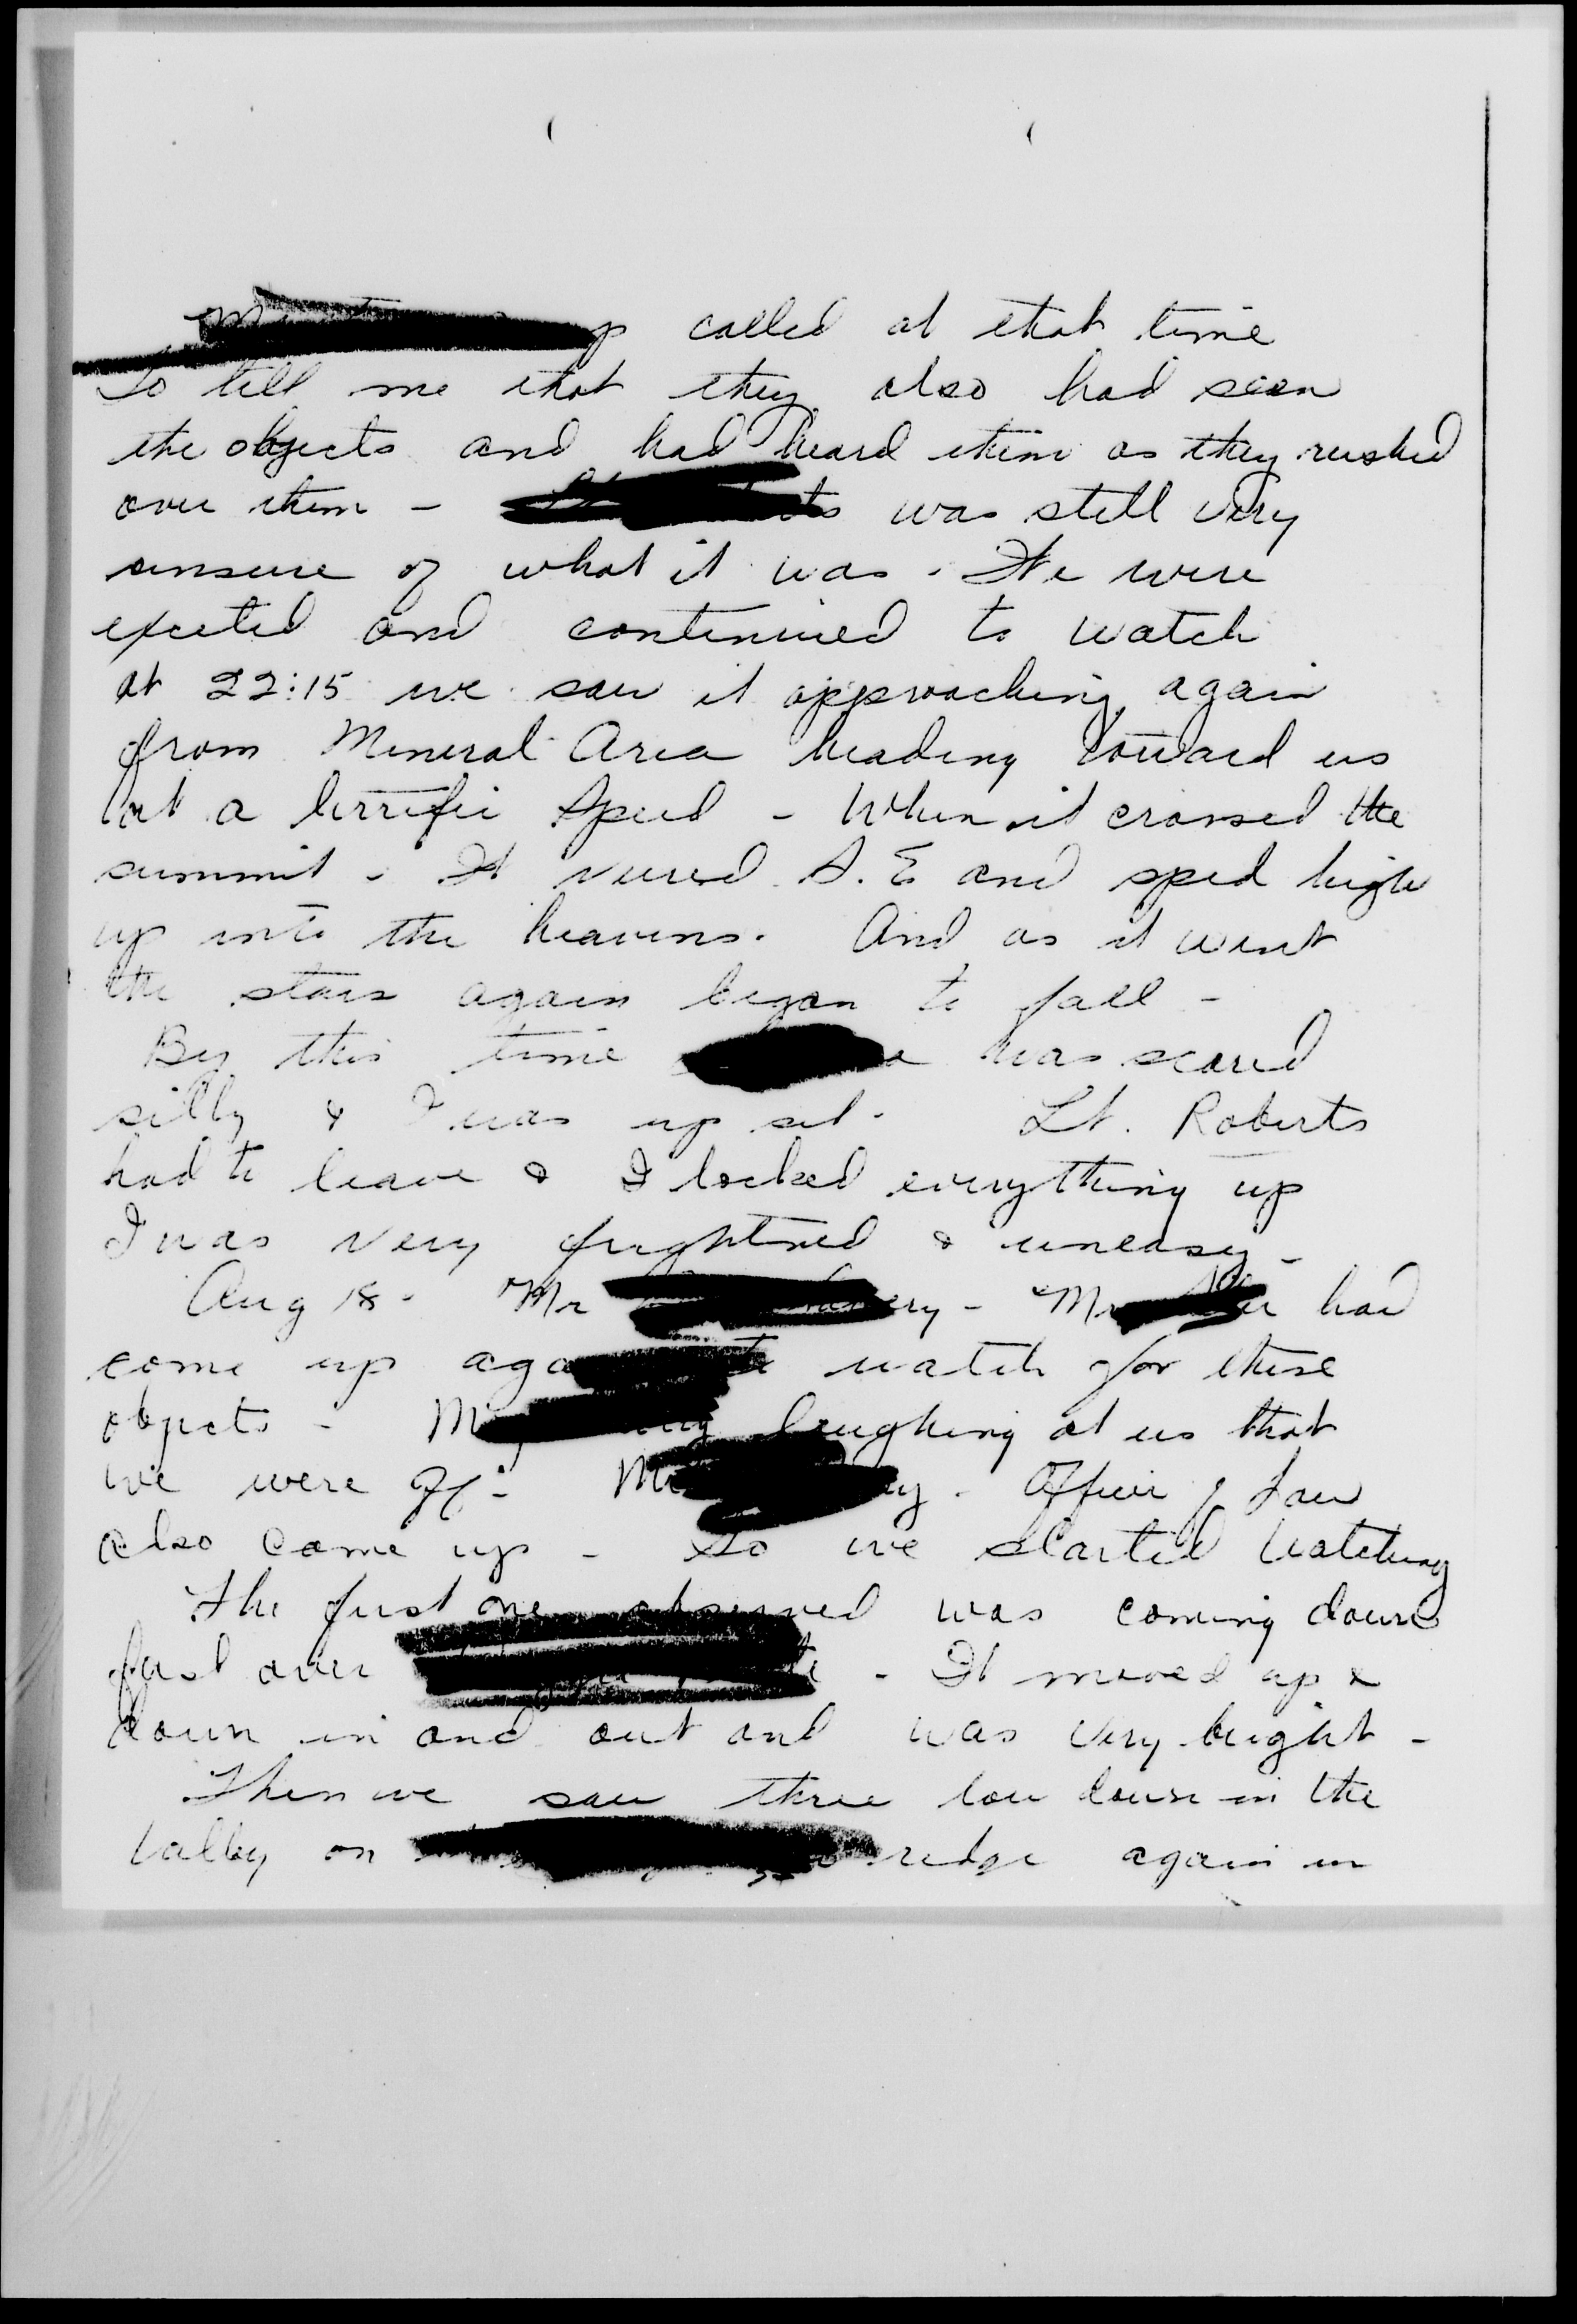 called at that time
to tell me that they also had seen
the objects and had heard them as they rushed
over them - was still very
unsure of what it was. We were
excited and continued to watch
at 22:15 we saw it approaching again
from Mineral Area heading toward us
at a terrific speed - When it crossed the
summit - It veered S.E and sped high
up into the heavens. And as it went
the stars again began to fall -
By this time was scared
silly & I was up set. Lt. Roberts
had to leave & I locked everything up
I was very frightned & uneasy -
Aug 18 - Mr - had
come up watch for these
objects - laughing at us that
we were - Officer of Law
also came up - So we started watching
The first one observed was coming down
fast over - It moved up &
down in and out and was very bright -
Then we saw three low down in the
valley on ridge again in